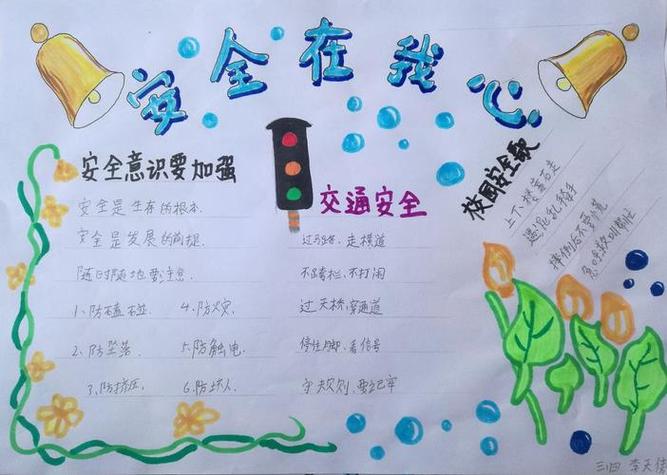 安全在我心
安全意识要加强
安全是生存的根本.
安全是发展的前提.
随时随地要注意.
1、防磕碰 4、防火灾.
2、防坠落. 5、防触电.
3、防挤压. 6、防坏人.
交通安全
过马路、走横道
不跨栏、不打闹
过天桥、穿通道
停住脚、看信号
守规则、要记牢
校园安全歌
上下楼靠右走
遇混乱
三1四 李天佳